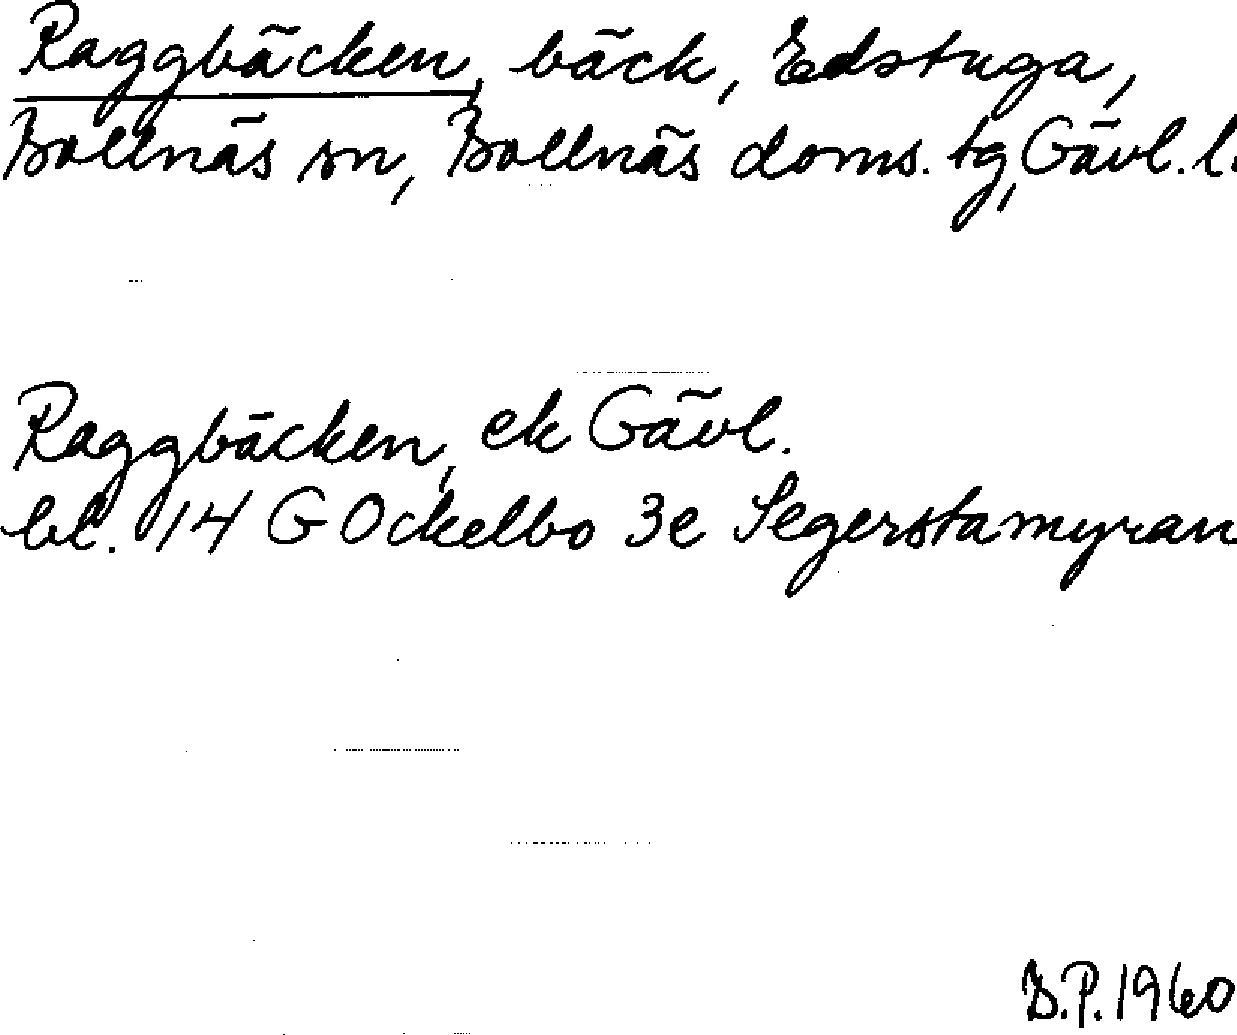 Raggbäcken, bäck, Edstuga,
Bollnäs sn, Bollnäs doms. tg, Gävl. l.
Raggbäcken, ek Gävl.
bl. 14 G Ockelbo 3e Segerstamyran
D.P. 1960